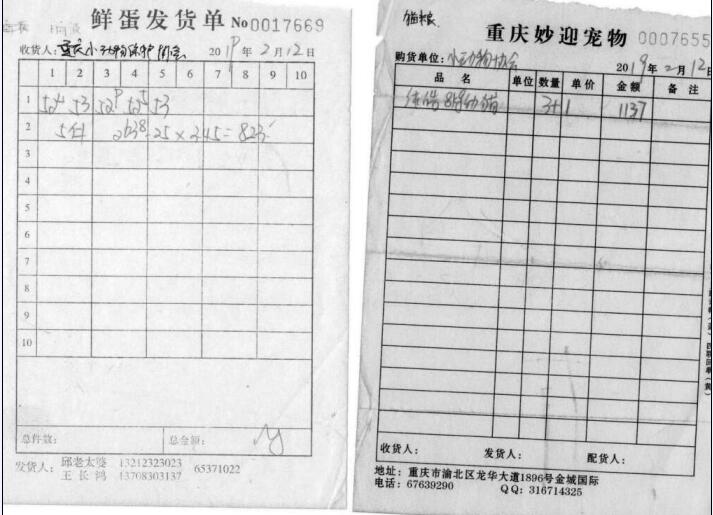 鲜蛋发货单 No 0017669
收货人：重庆小动物保护协会 2019年2月12日
1 2 3 4 5 6 7 8 9 10
1
2 5件
3
4
5
6
7
8
9
10
总件数： 总金额：
发货人：邱老太婆 13212323023 65371022
王长鸿 13708303137
猫粮
重庆妙迎宠物 0007655
购货单位：小动物协会 2019年2月12日
品名 单位 数量 单价 金额 备注
幼猫 3+1 1137
收货人： 发货人： 配货人：
地址：重庆市渝北区龙华大道1896号金城国际
电话：67639290 QQ：316714325